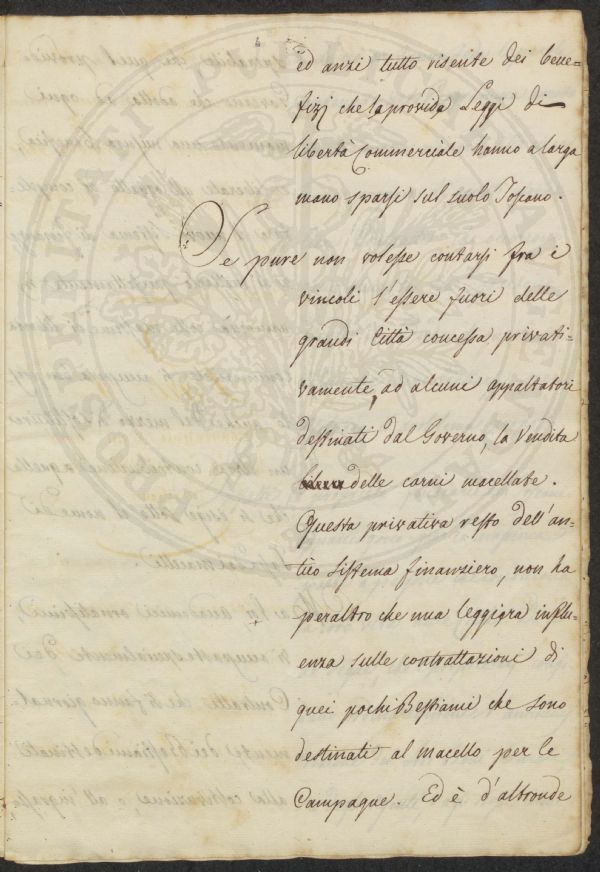 ed anzi tutto risente dei bene=
fizj che la provida Leggi di
libertà Commerciale hanno a larga
mano sparsi sul suolo Toscano.
Se pure non volesse contarsi fra i
vincoli l'essere fuori delle
grandi Città concessa privati=
vamente, ad alcuni appaltatori
destinati dal Governo, la Vendita
delle carni macellate.
Questa privativa resto dell'an=
tico sistema finanziero, non ha
peraltro che una leggiera influ=
enza sulle contrattazioni di
quei pochi Bestiami che sono
destinati al macello per le
Campagne. Ed è d'altronde